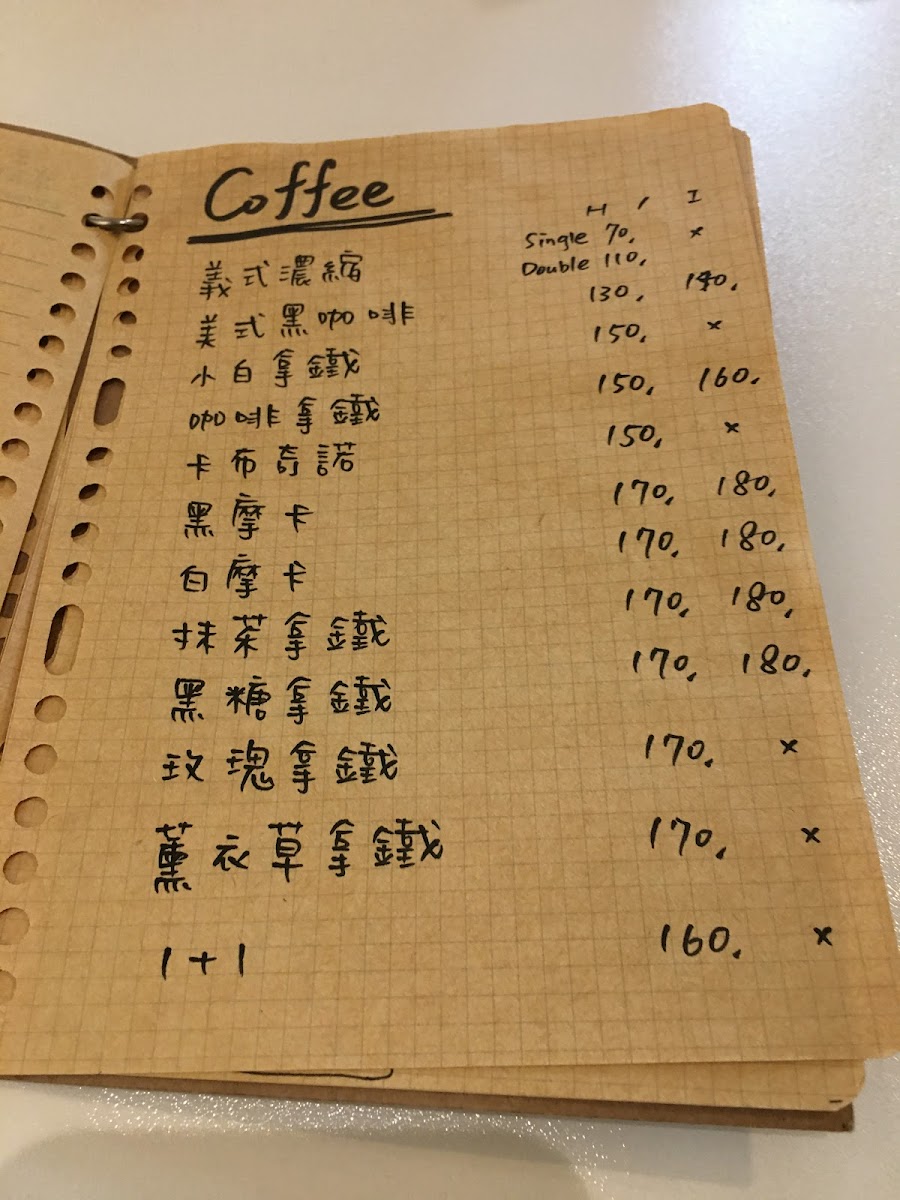 Coffee
H / I
義式濃縮 Single 70. x
Double 110.
美式黑咖啡 130. 140.
小白拿鐵 150. x
咖啡拿鐵 150. 160.
卡布奇諾 150. x
黑摩卡 170. 180.
白摩卡 170. 180.
抹茶拿鐵 170. 180.
黑糖拿鐵 170. 180.
玫瑰拿鐵 170. x
薰衣草拿鐵 170. x
1+1 160. x